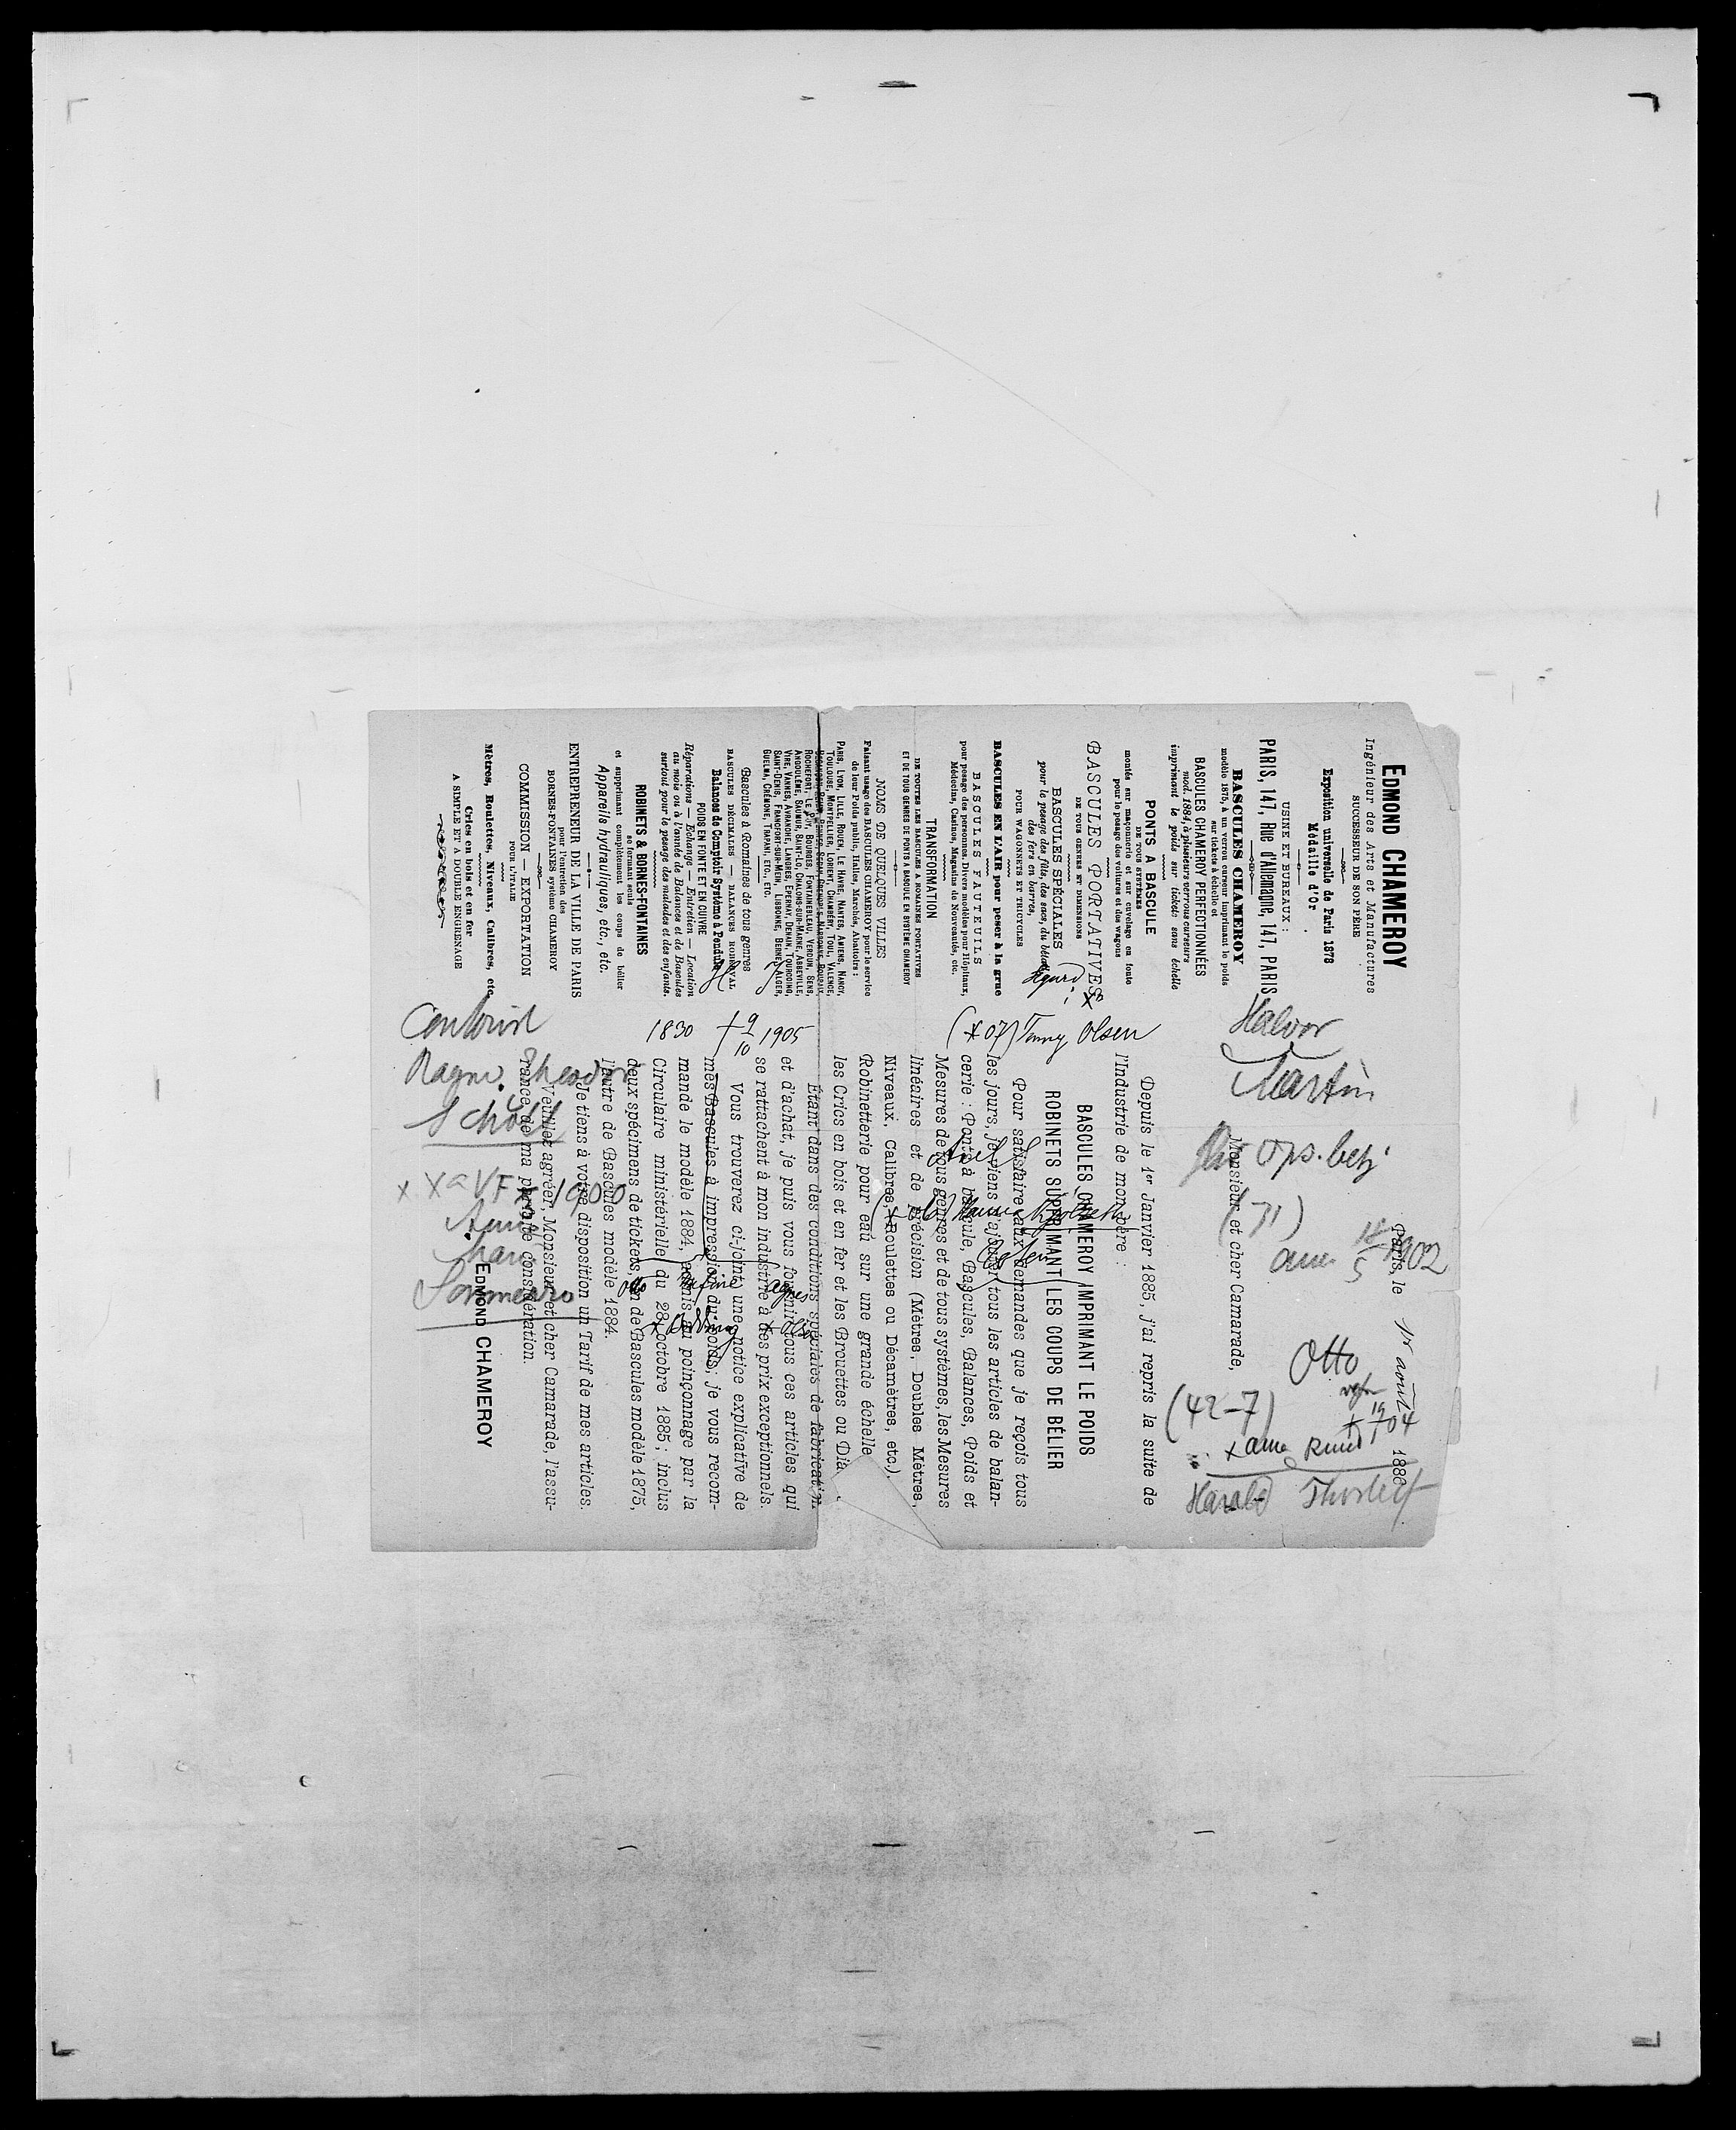 EDMOND CHAMEROY
Ingénieur des Arts et Manufactures
SUCCESSEUR DE SON PÈRE
Exposition universelle de Paris 1878
Médaille d'Or
USINE ET BUREAUX :
PARIS, 147, Rue d'Allemagne, 147, PARIS
BASCULES CHAMEROY
modèle 1875, à un verrou curseur imprimant le poids
sur tickets à échelle et
BASCULES CHAMEROY PERFECTIONNÉES
mod. 1884, à plusieurs verrous curseurs
imprimant le poids sur tickets sans échelle
PONTS A BASCULE
DE TOUS SYSTÈMES
montés sur maçonnerie et sur cuvelage en fonte
pour le pesage des voitures et des wagons
BASCULES PORTATIVES
DE TOUS GENRES ET DIMENSIONS
BASCULES SPÉCIALES
pour le pesage des fûts, des sacs, du bétail,
des fers en barres,
POUR WAGONNETS ET TRICYCLES
BASCULES EN L'AIR pour peser à la grue
BASCULES FAUTEUILS
pour pesage des personnes. Divers modèles pour Hôpitaux,
Médecins, Casinos, Magasins de Nouveautés, etc.
TRANSFORMATION
DE TOUTES LES BASCULES A ROMAINES PORTATIVES
ET DE TOUS GENRES DE PONTS A BASCULE EN SYSTÈME CHAMEROY
NOMS DE QUELQUES VILLES
Faisant usage des BASCULES CHAMEROY pour le service
de leur Poids public, Halles, Marchés, Abattoirs :
PARIS, LYON, LILLE, ROUEN, LE HAVRE, NANTES, AMIENS, NANCY,
TOULOUSE, MONTPELLIER, LORIENT, CHAMBÉRY, TOUL, VALENCE,
ROCHEFORT, LE PUY, BOURGES, FONTAINEBLEAU, VERDUN, SENS,
ANGOULÊME, SAUMUR, SAINT-LO, CHALONS-SUR-MARNE, ABBEVILLE,
VIRE, VANNES, AVRANCHE, LANGRES, EPERNAY, DENAIN, TOURCOING,
SAINT-DENIS, FRANCFORT-SUR-MEIN, LISBONNE, BERNE, ALGER,
GUELMA, CRÉMONE, TRAPANI, ETC., ETC.
Bascules à Romaines de tous genres
BASCULES DÉCIMALES — BALANCES ROBERVAL
Balances de Comptoir Système à Pendule
POIDS EN FONTE ET EN CUIVRE
Réparations — Echange — Entretien — Location
au mois ou à l'année de Balances et de Bascules
surtout pour le pesage des malades et des enfants.
ROBINETS & BORNES-FONTAINES
se fermant seuls
et supprimant complètement les coups de bélier
Appareils hydrauliques, etc., etc.
ENTREPRENEUR DE LA VILLE DE PARIS
pour l'entretien des
BORNES-FONTAINES système CHAMEROY
COMMISSION — EXPORTATION
POUR L'ITALIE
Mètres, Roulettes, Niveaux, Calibres, etc.
Crics en bois et en fer
A SIMPLE ET A DOUBLE ENGRENAGE
Paris, le 188
Monsieur et cher Camarade,
Depuis le 1er Janvier 1885, j'ai repris la suite de
l'Industrie de mon père :
BASCULES CHAMEROY IMPRIMANT LE POIDS
ROBINETS SUPPRIMANT LES COUPS DE BÉLIER
Pour satisfaire aux demandes que je reçois tous
les jours, je viens d'ajouter tous les articles de balan-
cerie : Ponts à bascule, Bascules, Balances, Poids et
Mesures de tous genres et de tous systèmes, les Mesures
linéaires et de précision (Mètres, Doubles Mètres,
Niveaux, Calibres, Roulettes ou Décamètres, etc.).
Robinetterie pour eau sur une grande échelle
les Crics en bois et en fer et les Brouettes ou
Étant dans des conditions spéciales de fabrication
et d'achat, je puis vous fournir tous ces articles qui
se rattachent à mon industrie à des prix exceptionnels.
Vous trouverez ci-joint une notice explicative de
mes Bascules à impression du poids; je vous recom-
mande le modèle 1884, admis au poinçonnage par la
Circulaire ministérielle du 28 octobre 1885; inclus
deux spécimens de tickets, un de Bascules modèle 1875,
l'autre de Bascules modèle 1884.
Je tiens à votre disposition un Tarif de mes articles.
Veuillez agréer, Monsieur et cher Camarade, l'assu-
rance de ma parfaite considération.
EDMOND CHAMEROY
Halvor
Martin
(71)
18/5 1902
Otto
(42-7)
Harald
(* 07) Fanny Olsen
1830 † 9/10 1905
Schött
1900